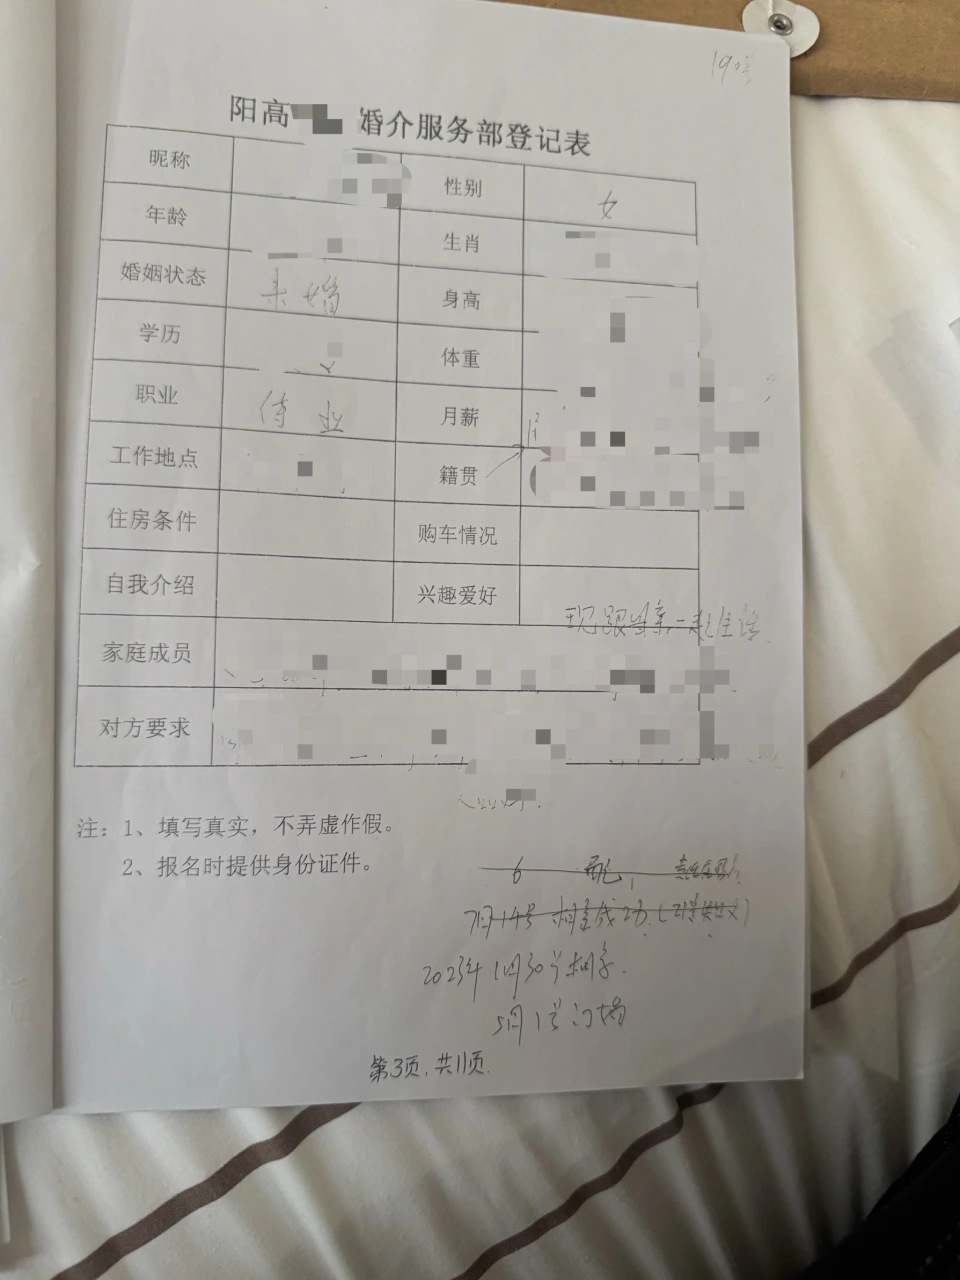 190号
阳高 婚介服务部登记表
昵称 性别 女
年龄 生肖
婚姻状态 未婚 身高
学历 体重
职业 待业 月薪
工作地点 籍贯
住房条件 购车情况
自我介绍 兴趣爱好
现跟母亲一起生活
家庭成员
对方要求
注：1、填写真实，不弄虚作假。
2、报名时提供身份证件。
6
7月14号相亲成功
2023年1月30号相亲.
5月1号订婚
第3页.共11页.